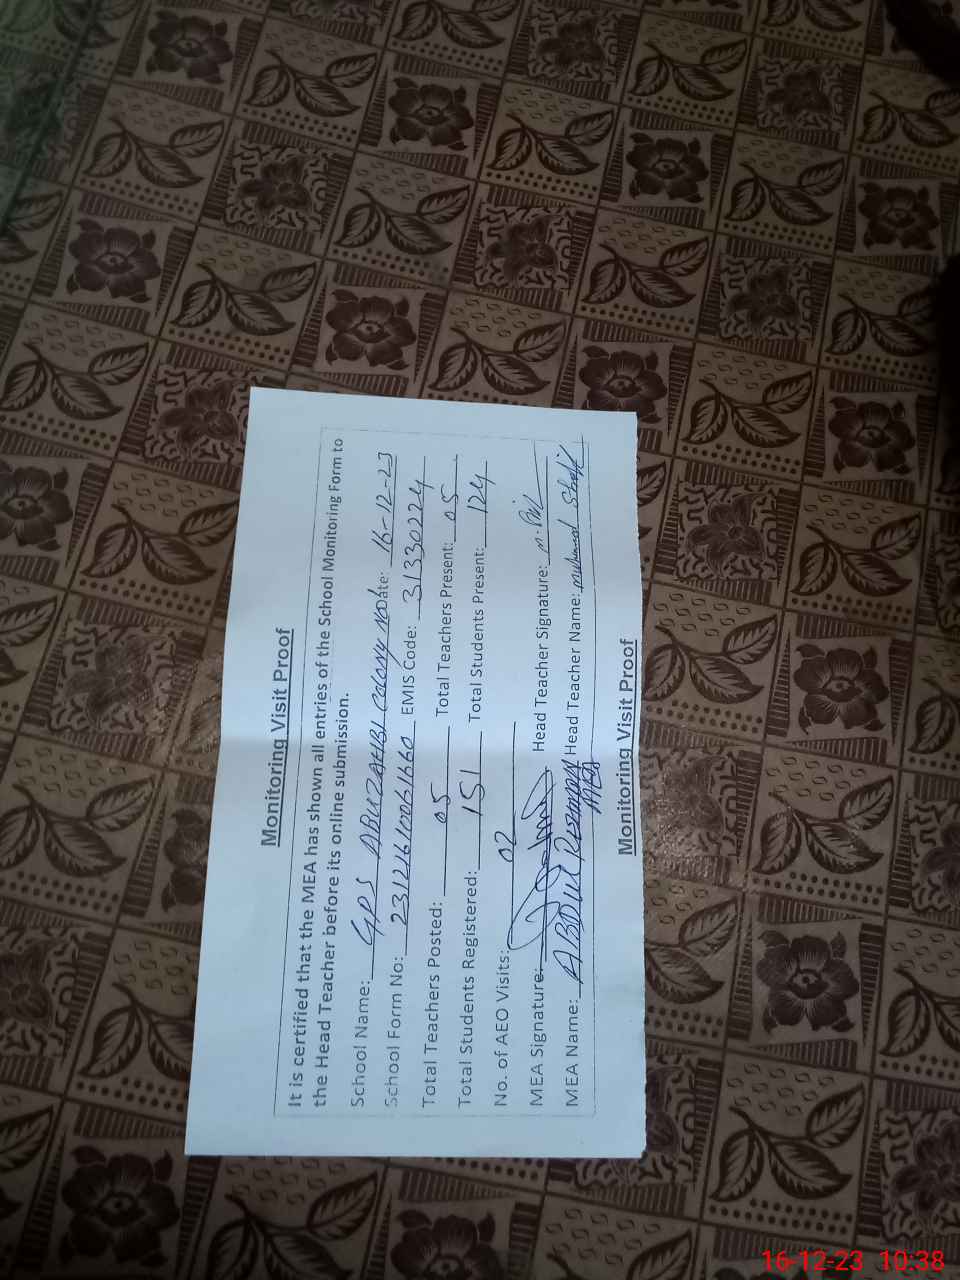 Monitoring Visit Proof
It is certified that the MEA has shown all entries of the School Monitoring Form to
the Head Teacher before its online submission.
School Name: GPS ABUZAHBI COLONY ate: 16-12-23
School Form No: EMIS Code: 31330224
Total Teachers Posted: 05 Total Teachers Present: 05
Total Students Registered: 151 Total Students Present: 124
No. of AEO Visits: 02
MEA Signature: Head Teacher Signature:
MEA Name: ABDUL REHMAN Head Teacher Name: Muhammad Shafi
MEA
Monitoring Visit Proof
16-12-23 10:38